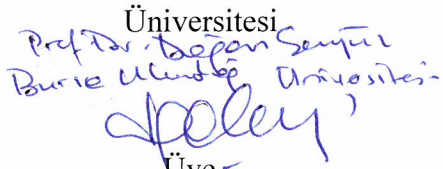 Üniversitesi
Prof. Dr. Doğan Şenyüz
Bursa Uludağ Üniversitesi
Üye